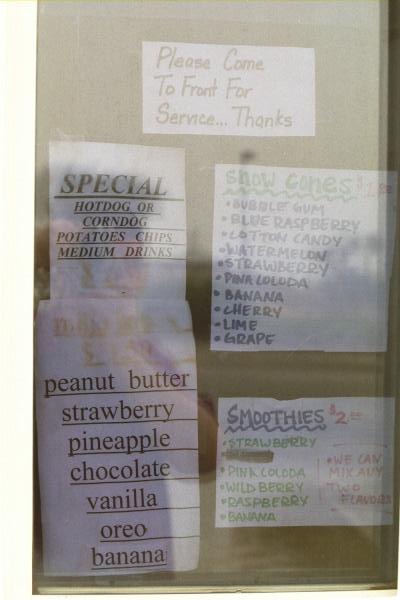 Please Come
To Front For
Service... Thanks
SPECIAL
HOTDOG OR
CORNDOG
POTATOES CHIPS
MEDIUM DRINKS
peanut butter
strawberry
pineapple
chocolate
vanilla
oreo
banana
SNOW CONES
•BUBBLE GUM
•BLUE RASPBERRY
•COTTON CANDY
•WATERMELON
•STRAWBERRY
•PINA COLODA
•BANANA
•CHERRY
•LIME
•GRAPE
SMOOTHIES $2.00
•STRAWBERRY
•PINA COLODA
•WILDBERRY
•RASPBERRY
•BANANA
•WE CAN
MIX ANY
TWO
FLAVORS